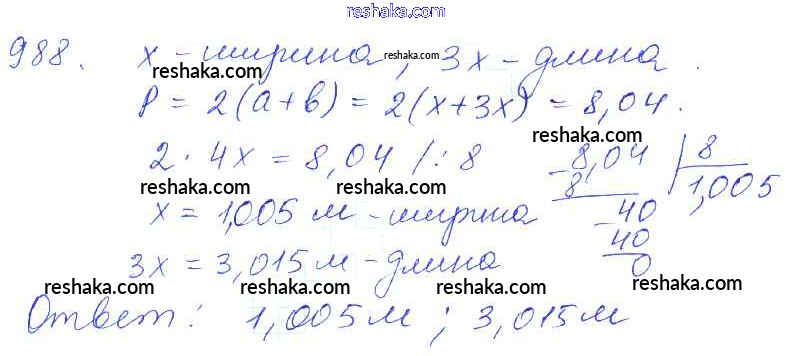 reshaka.com
988. x - ширина, reshaka.com 3x - длина.
reshaka.com reshaka.com
P = 2(a+b) = 2(x+3x) = 8,04.
reshaka.com
2 · 4x = 8,04 /: 8
8,04 | 8
- 8 1,005
reshaka.com reshaka.com reshaka.com
x = 1,005 м - ширина
- 40
40
0
reshaka.com
3x = 3,015 м - длина
reshaka.com reshaka.com reshaka.com
Ответ: 1,005 м; 3,015 м
reshaka.com